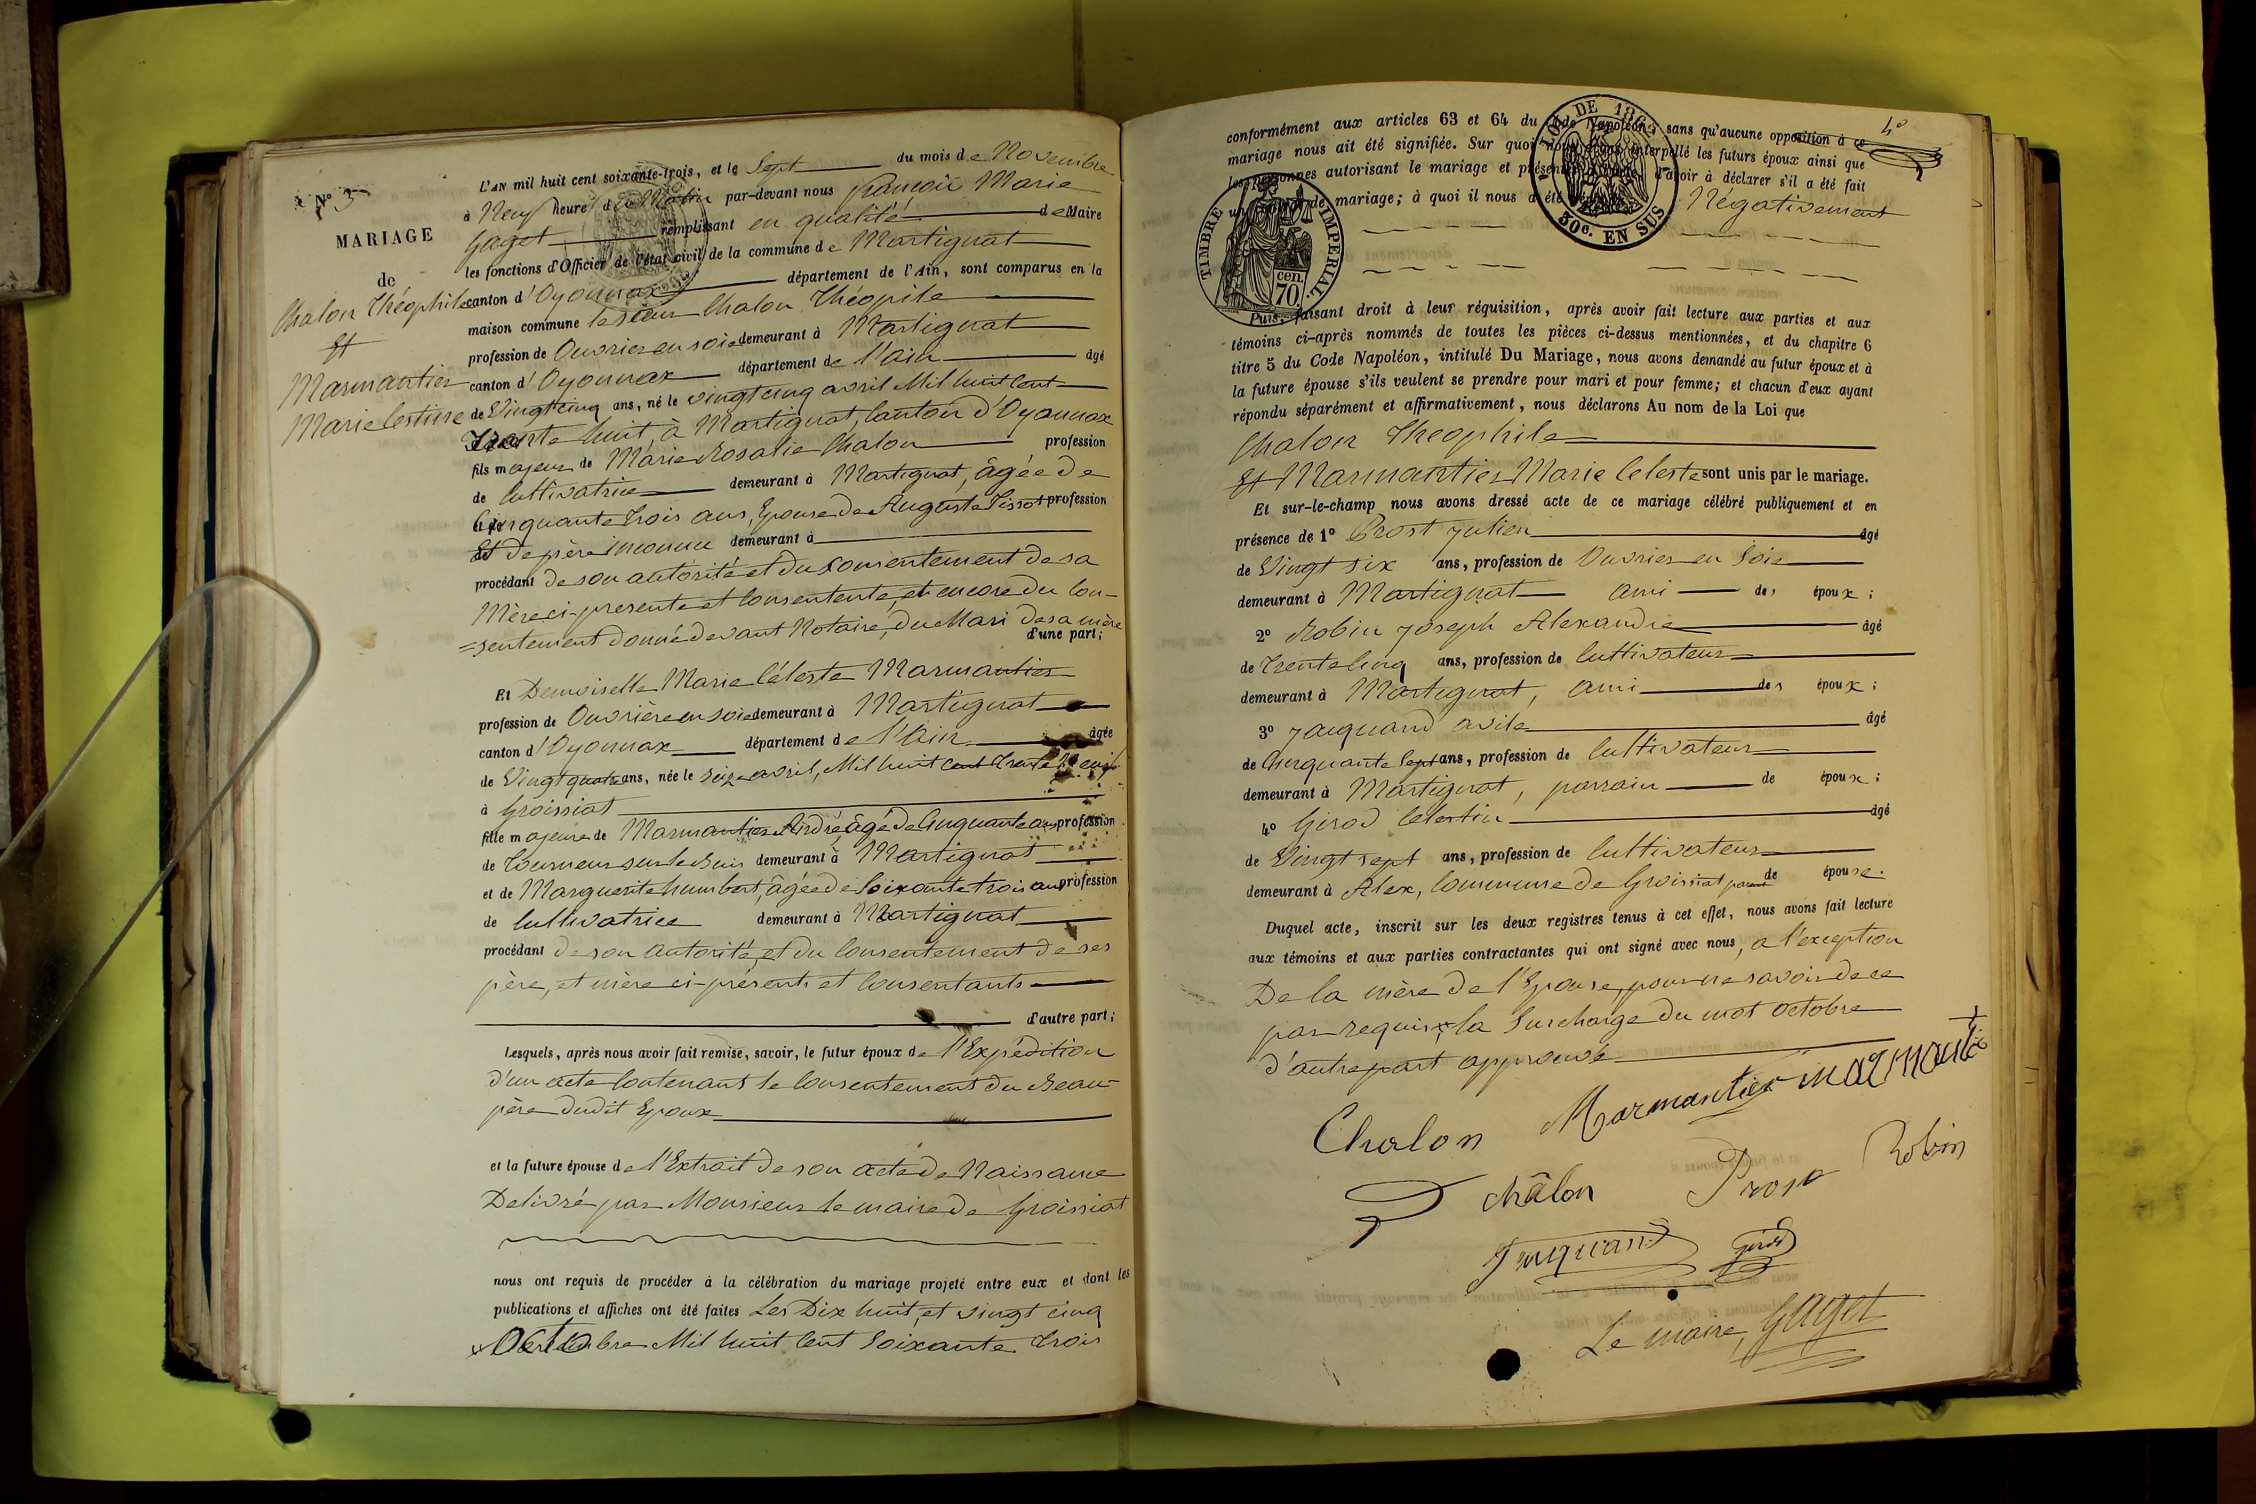 N° 3
MARIAGE
de
Chalon Théophile
Et
Marmantier
Marie Cestine
L'AN mil huit cent soixante-trois, et le Sept du mois de Novembre
à Neuf heure du Matin par-devant nous françois Marie
Gaget remplissant en qualité de Maire
les fonctions d'Officier de l'état civil de la commune de Martignat
canton d'Oyonnax département de l'Ain, sont comparus en la
maison commune le sieur Chalon Théopile
profession de Ouvrier en soie demeurant à Martignat
canton d'Oyonnax département de l'ain âgé
de Vingt cinq ans, né le vingt cinq avril Mil huit Cent
Trente huit, à Martignat, Canton d'Oyonnax
fils majeur de Marie Rosalie Chalon profession
de Cultivatrice demeurant à Martignat, âgée de
Cinquante trois ans, Epouse de Auguste Tissot profession
Et de père inconnu demeurant à
procédant de son autorité et du consentement de sa
Mère ci-presente et Consentente, et encore du Con-
=sentement donné devant Notaire, du Mari de sa mère
d'une part;
Et Demoiselle Marie Céleste Marmantier
profession de Ouvrière en soie demeurant à Martignat
canton d'Oyonnax département de l'Ain âgée
de Vingt quatre ans, née le seize avril, Mil huit cent Trente Neuf
à Groissiat
fille majeure de Marmantier André, âgé de Cinquante ans profession
de Tourneur sur le bois demeurant à Martignat
et de Marguerite humbert, âgée de Soixante trois ans profession
de Cultivatrice demeurant à Martignat
procédant de son autorité, et du Consentement de ses
père, et mère ci-présents et Consentants
d'autre part;
Lesquels, après nous avoir fait remise, savoir, le futur époux de l'Expédition
d'un acte Contenant le Consentement du Beau-
père dudit Epoux
et la future épouse de l'Extrait de son acte de Naissance
Delivré par Monsieur le maire de Groissiat
nous ont requis de procéder à la célébration du mariage projeté entre eux et dont les
publications et affiches ont été faites Les Dix huit, et vingt cinq
Octobre Mil huit Cent Soixante trois
4°
conformément aux articles 63 et 64 du Code Napoléon, sans qu'aucune opposition à ce
mariage nous ait été signifiée. Sur quoi nous avons interpellé les futurs époux ainsi que
les personnes autorisant le mariage et présentes d'avoir à déclarer s'il a été fait
un de mariage; à quoi il nous a été Négativement
LOI DE 1862
30c. EN SUS
TIMBRE IMPÉRIAL
cen.
70.
Puis, faisant droit à leur réquisition, après avoir fait lecture aux parties et aux
témoins ci-après nommés de toutes les pièces ci-dessus mentionnées, et du chapitre 6
titre 5 du Code Napoléon, intitulé Du Mariage, nous avons demandé au futur époux et à
la future épouse s'ils veulent se prendre pour mari et pour femme; et chacun d'eux ayant
répondu séparément et affirmativement, nous déclarons Au nom de la Loi que
Chalon Theophile
Et Marmantier Marie Celeste sont unis par le mariage.
Et sur-le-champ nous avons dressé acte de ce mariage célébré publiquement et en
présence de 1° Prost Julien âgé
de Vingt six ans, profession de Ouvrier en Soie
demeurant à Martignat Ami des époux;
2° Robin Joseph Alexandre âgé
de Trente Cinq ans, profession de Cultivateur
demeurant à Martignat, ami des époux;
3° Jacquand avite âgé
de Cinquante Sept ans, profession de Cultivateur
demeurant à Martignat, parrain de époux;
4° Girod Célestin âgé
de Vingt sept ans, profession de Cultivateur
demeurant à Alex, Commune de Groissiat parent de épouse.
Duquel acte, inscrit sur les deux registres tenus à cet effet, nous avons fait lecture
aux témoins et aux parties contractantes qui ont signé avec nous, a l'exception
De la mère de l'Epouse, pour ne savoir de ce
par requis, la Surcharge du mot octobre
d'autre part approuvé
Chalon Marmantier marmantié
châlon Prost Robin
Jacquand Girod
Le maire, Gaget